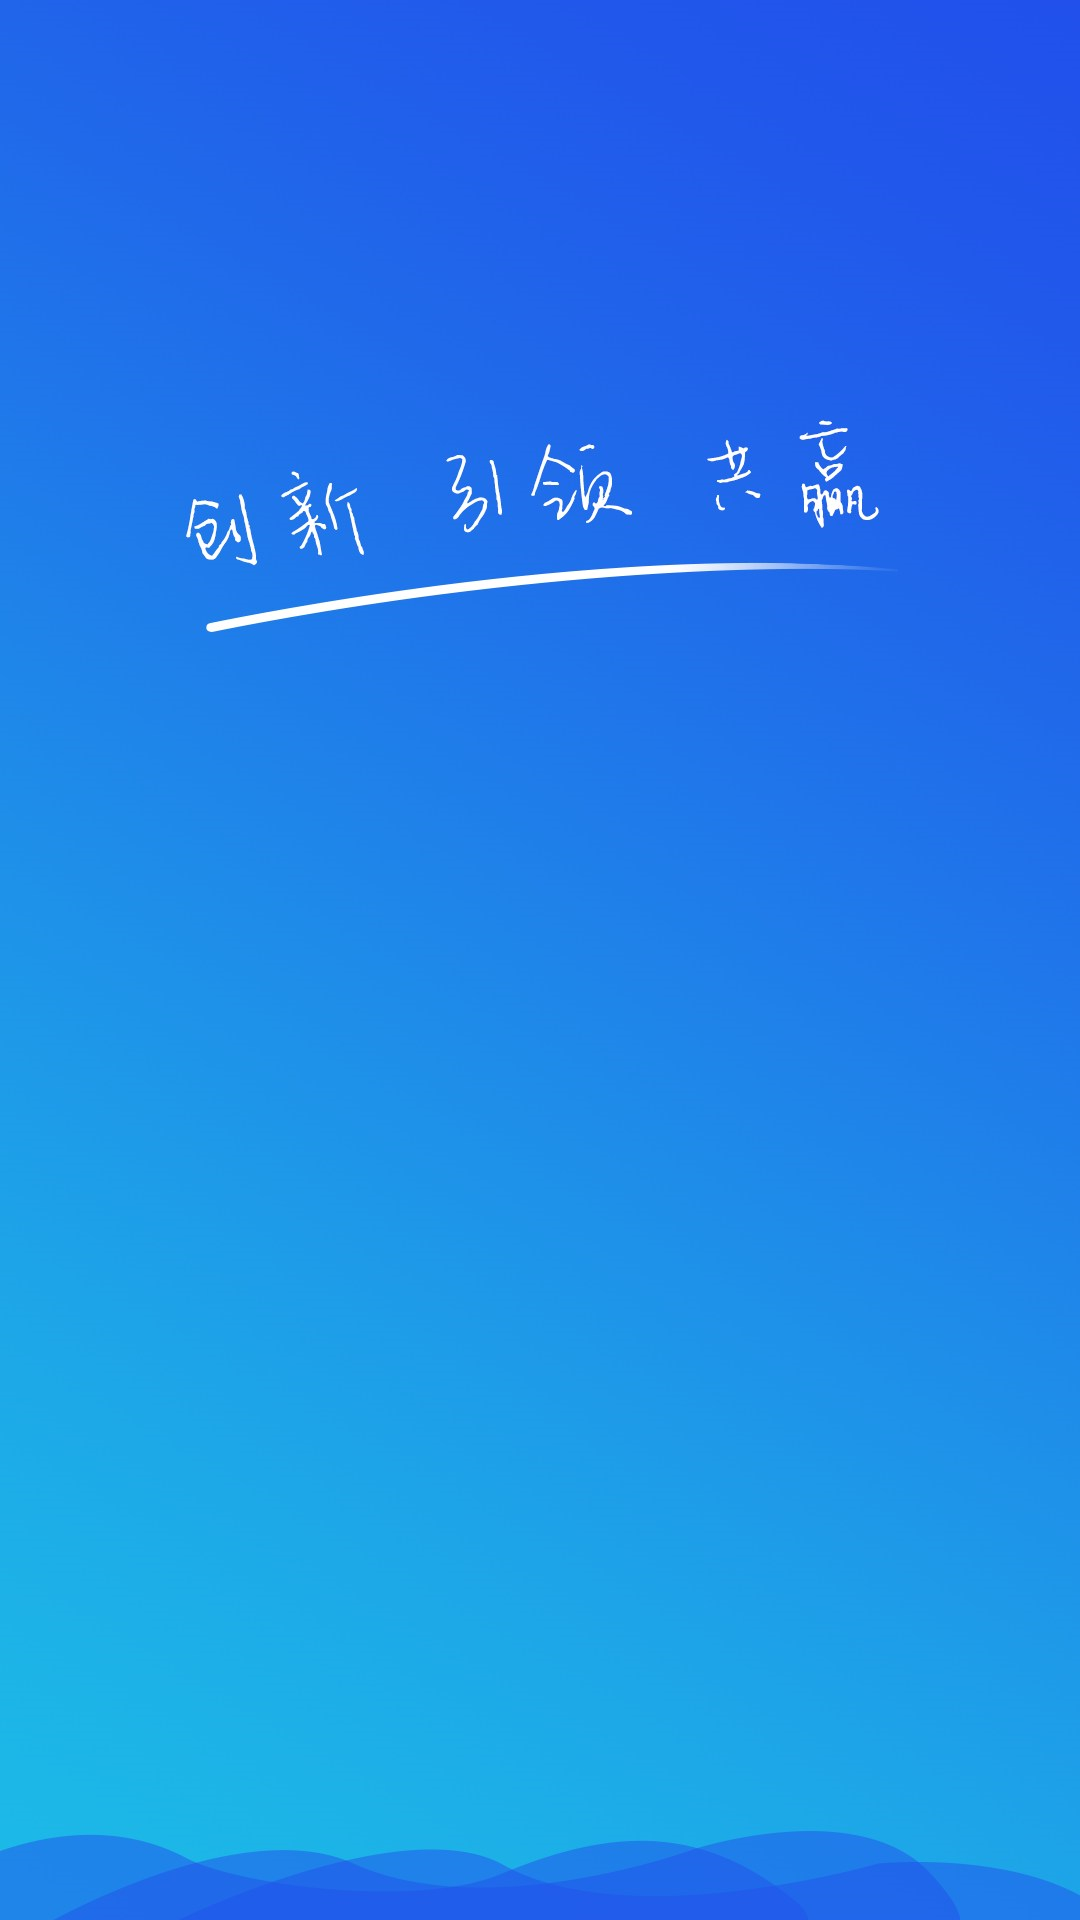 创新 引领 共赢